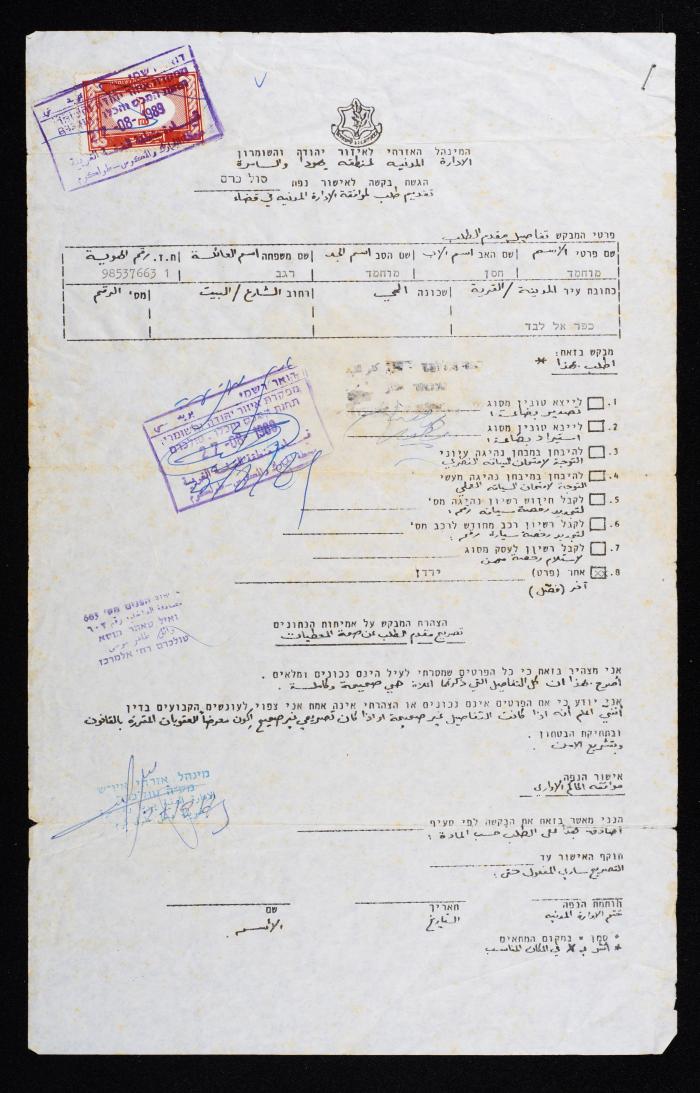 דואר רשמי
-08-1989
המינהל האזרחי לאיזור יהודה והשומרון
الادارة المدنية لمنطقة يهودا والسامرة
הגשת בקשה לאישור נפת טול כרם
تقديم طلب لموافقة الادارة المدنية في قضاء
פרטי המבקש تفاصيل مقدم الطلب
שם פרטי الاسم | שם האב اسم الاب | שם הסב اسم الجد | שם משפחה اسم العائلة | ת.ז. رقم الهوية
מוחמד | חסן | מוחמד | רגב | 98537663 1
כתובת עיר المدينة / القرية | שכונה الحي | רחוב الشارع / البيت | מס' الرقم
כפר אל לבד
מבקש בזאת:
اطلب بهذا *
1. לייצא טובין מסוג
تصدير بضاعة :
2. לייבא טובין מסוג
استيراد بضاعة :
3. להיבחן במבחן נהיגה עיוני
التوجه لامتحان السياقه النظري
4. להיבחן במיבחן נהיגה מעשי
التوجه لامتحان السياقه العملي
5. לקבל חידוש רשיון נהיגה מס'
لتجديد رخصة سياقه رقم :
6. לקבל רשיון רכב מחודש לרכב מס'
لتجديد رخصة سيارة رقم :
7. לקבל רשיון לעסק מסוג
لاستلام رخصة مهن
8. אחר (פרט) ירדן
آخر (فصّل)
דואר רשמי
מפקדת איזור יהודה והשומרון
תחנת המכס והבלו - טולכרם
27-08-1989
הצהרת המבקש על אמיתות הנתונים
تصريح مقدم الطلب عن صحة المعطيات
אני מצהיר בזאת כי כל הפרטים שמסרתי לעיל הינם נכונים ומלאים .
اصرح بهذا ان كل التفاصيل التي ذكرتها اعلاه هي صحيحة وكاملة .
אני יודע כי אם הפרטים אינם נכונים או הצהרתי אינה אמת אני צפוי לעונשים הקבועים בדין
انني اعلم أنه اذا كانت التفاصيل غير صحيحة او اذا كان تصريحي غير صحيح أكون معرضاً للعقوبات المقررة بالقانون
ובתחיקת הבטחון .
وبتشريع الامن .
אישור הנפה
موافقة الحاكم الاداري
הנני מאשר בזאת את הבקשה לפי סעיף
اصادق بهذا على الطلب حسب المادة :
תוקף האישור עד
التصريح ساري المفعول حتى :
חותמת הנפה תאריך שם
ختم الادارة المدنيه التاريخ الاسم
* סמן * במקום המתאים
* أشر بـ * في المكان المناسب